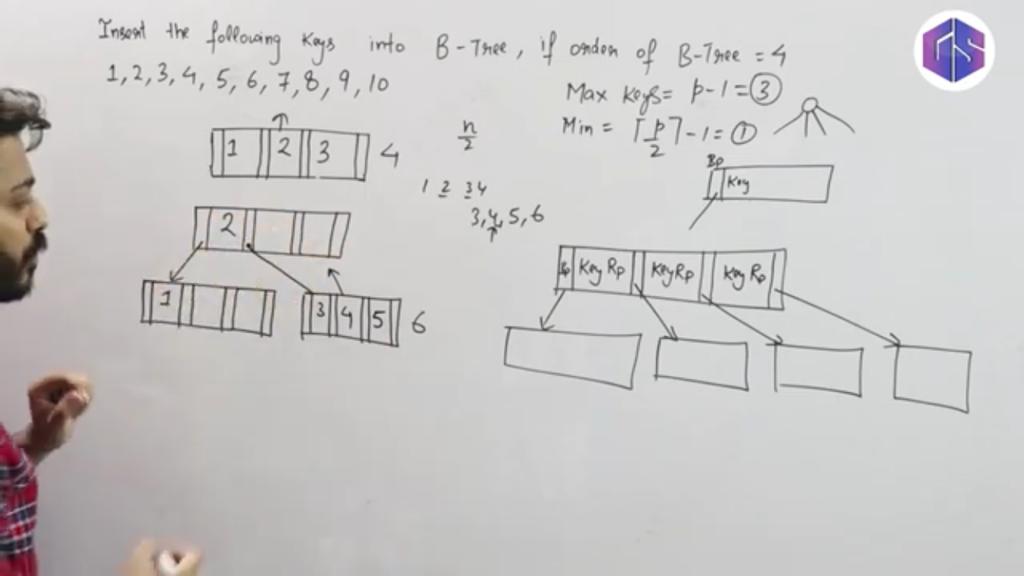 Insert the following Keys into B-Tree, if order of B-Tree = 4
1, 2, 3, 4, 5, 6, 7, 8, 9, 10
Max Keys = p-1 = 3
Min = ⌈p/2⌉-1 = 1
1 2 3 4
n/2
1 2 3 4
3, 4, 5, 6
Bp
Key
2
1
3 4 5 6
Bp Key Rp Key Rp Key Rp